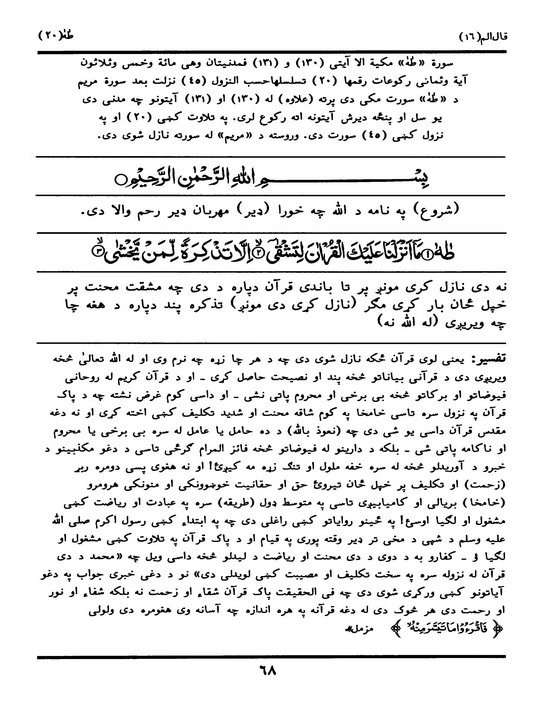 قال‌الم(١٦) طٰهٰ(٢٠)
سورة «طٰهٰ» مکیة الا آیتی (١٣٠) و (١٣١) فمدنیتان وهی مائة وخمس وثلاثون
آیة وثمانی رکوعات رقمها (٢٠) تسلسلهاحسب النزول (٤٥) نزلت بعد سورة مریم
د «طٰهٰ» سورت مکی دی پرته (علاوه) له (١٣٠) او (١٣١) آیتونو چه مدنی دی
یو سل او پنځه دیرش آیتونه اته رکوع لری. په تلاوت کښی (٢٠) او په
نزول کښی (٤٥) سورت دی. وروسته د «مریم» له سورته نازل شوی دی.
بِسْــــمِ اللهِ الرَّحْمٰنِ الرَّحِیْمِ○
(شروع) په نامه د الله چه خورا (ډیر) مهربان ډیر رحم والا دی.
طٰهٰ ﴿١﴾ مَآ اَنْزَلْنَا عَلَیْكَ الْقُرْاٰنَ لِتَشْقٰۤی ﴿٢﴾ اِلَّا تَذْكِرَةً لِّمَنْ یَّخْشٰی ﴿٣﴾
نه دی نازل کړی مونږ پر تا باندی قرآن دپاره د دی چه مشقت محنت پر
خپل ځان بار کړی مګر (نازل کړی دی مونږ) تذکره پند دپاره د هغه چا
چه ویریږی (له الله نه)
تفسیر: یعنی لوی قرآن ځکه نازل شوی دی چه د هر چا زړه چه نرم وی او له الله تعالیٰ څخه
ویریږی دی د قرآنی بیاناتو څخه پند او نصیحت حاصل کړی ـ او د قرآن کریم له روحانی
فیوضاتو او برکاتو څخه بی برخی او محروم پاتی نشی ـ او داسی کوم غرض نشته چه د پاک
قرآن په نزول سره تاسی خامخا په کوم شاقه محنت او شدید تکلیف کښی اخته کړی او نه دغه
مقدس قرآن داسی یو شی دی چه (نعوذ بالله) د ده حامل یا عامل له سره بی برخی یا محروم
او ناکامه پاتی شی ـ بلکه د دارینو له فیوضاتو څخه فائز المرام ګرځی تاسی د دغو مکذبینو د
خبرو د آوریدلو څخه له سره خفه ملول او تنګ زړه مه کیږئ! او نه هغوی پسی دومره ربړ
(زحمت) او تکلیف پر خپل ځان تیروئ حق او حقانیت خوښوونکی او منونکی هرومرو
(خامخا) بریالی او کامیابیږی تاسی په متوسط ډول (طریقه) سره په عبادت او ریاضت کښی
مشغول او لګیا اوسئ! په ځینو روایاتو کښی راغلی دی چه په ابتداء کښی رسول اکرم صلی الله
علیه وسلم د شپی د مخی تر ډیر وقته پوری په قیام او د پاک قرآن په تلاوت کښی مشغول او
لګیا ؤ ـ کفارو به د دوی د دی محنت او ریاضت د لیدلو څخه داسی ویل چه «محمد د دی
قرآن له نزوله سره په سخت تکلیف او مصیبت کښی لویدلی دی» نو د دغی خبری جواب په دغو
آیاتونو کښی ورکړی شوی دی چه فی الحقیقت پاک قرآن شقاء او زحمت نه بلکه شفاء او نور
او رحمت دی هر څوک دی له دغه قرآنه په هره اندازه چه آسانه وی هغومره دی ولولی
﴿ فَاقْرَءُوْا مَا تَیَسَّرَ مِنْهُ ﴾ مزمل»
٦٨